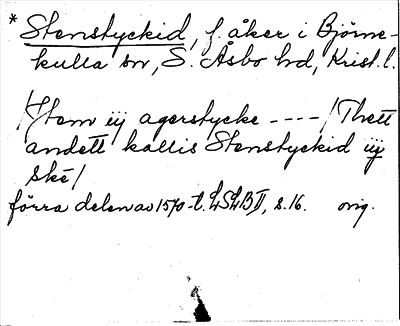 * Stenstyckid, f. åker i Björne-
kulla sn, S. Åsbo hd, Krist. l.
/Item iij agerstycke ----/Thett
andett kallis Stenstyckid iij
ské/
förra delen av 1570-t. LSLB II, s. 16. orig.